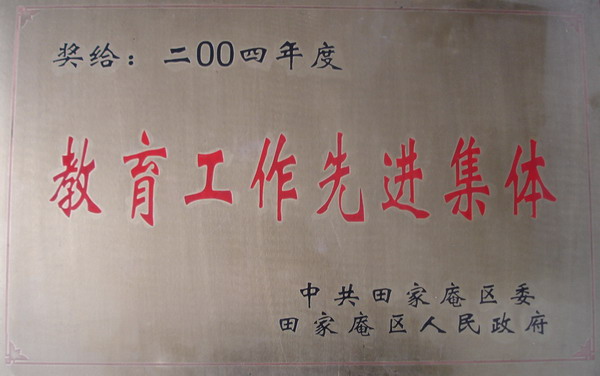 奖给：二00四年度
教育工作先进集体
中共田家庵区委
田家庵区人民政府